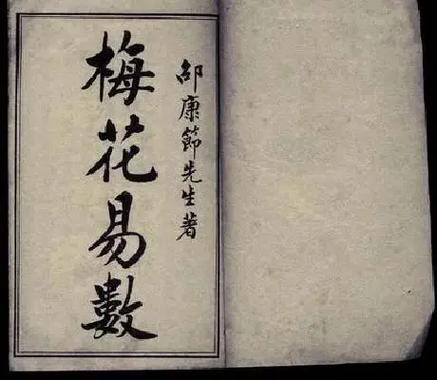 邵康節先生著
梅花易數